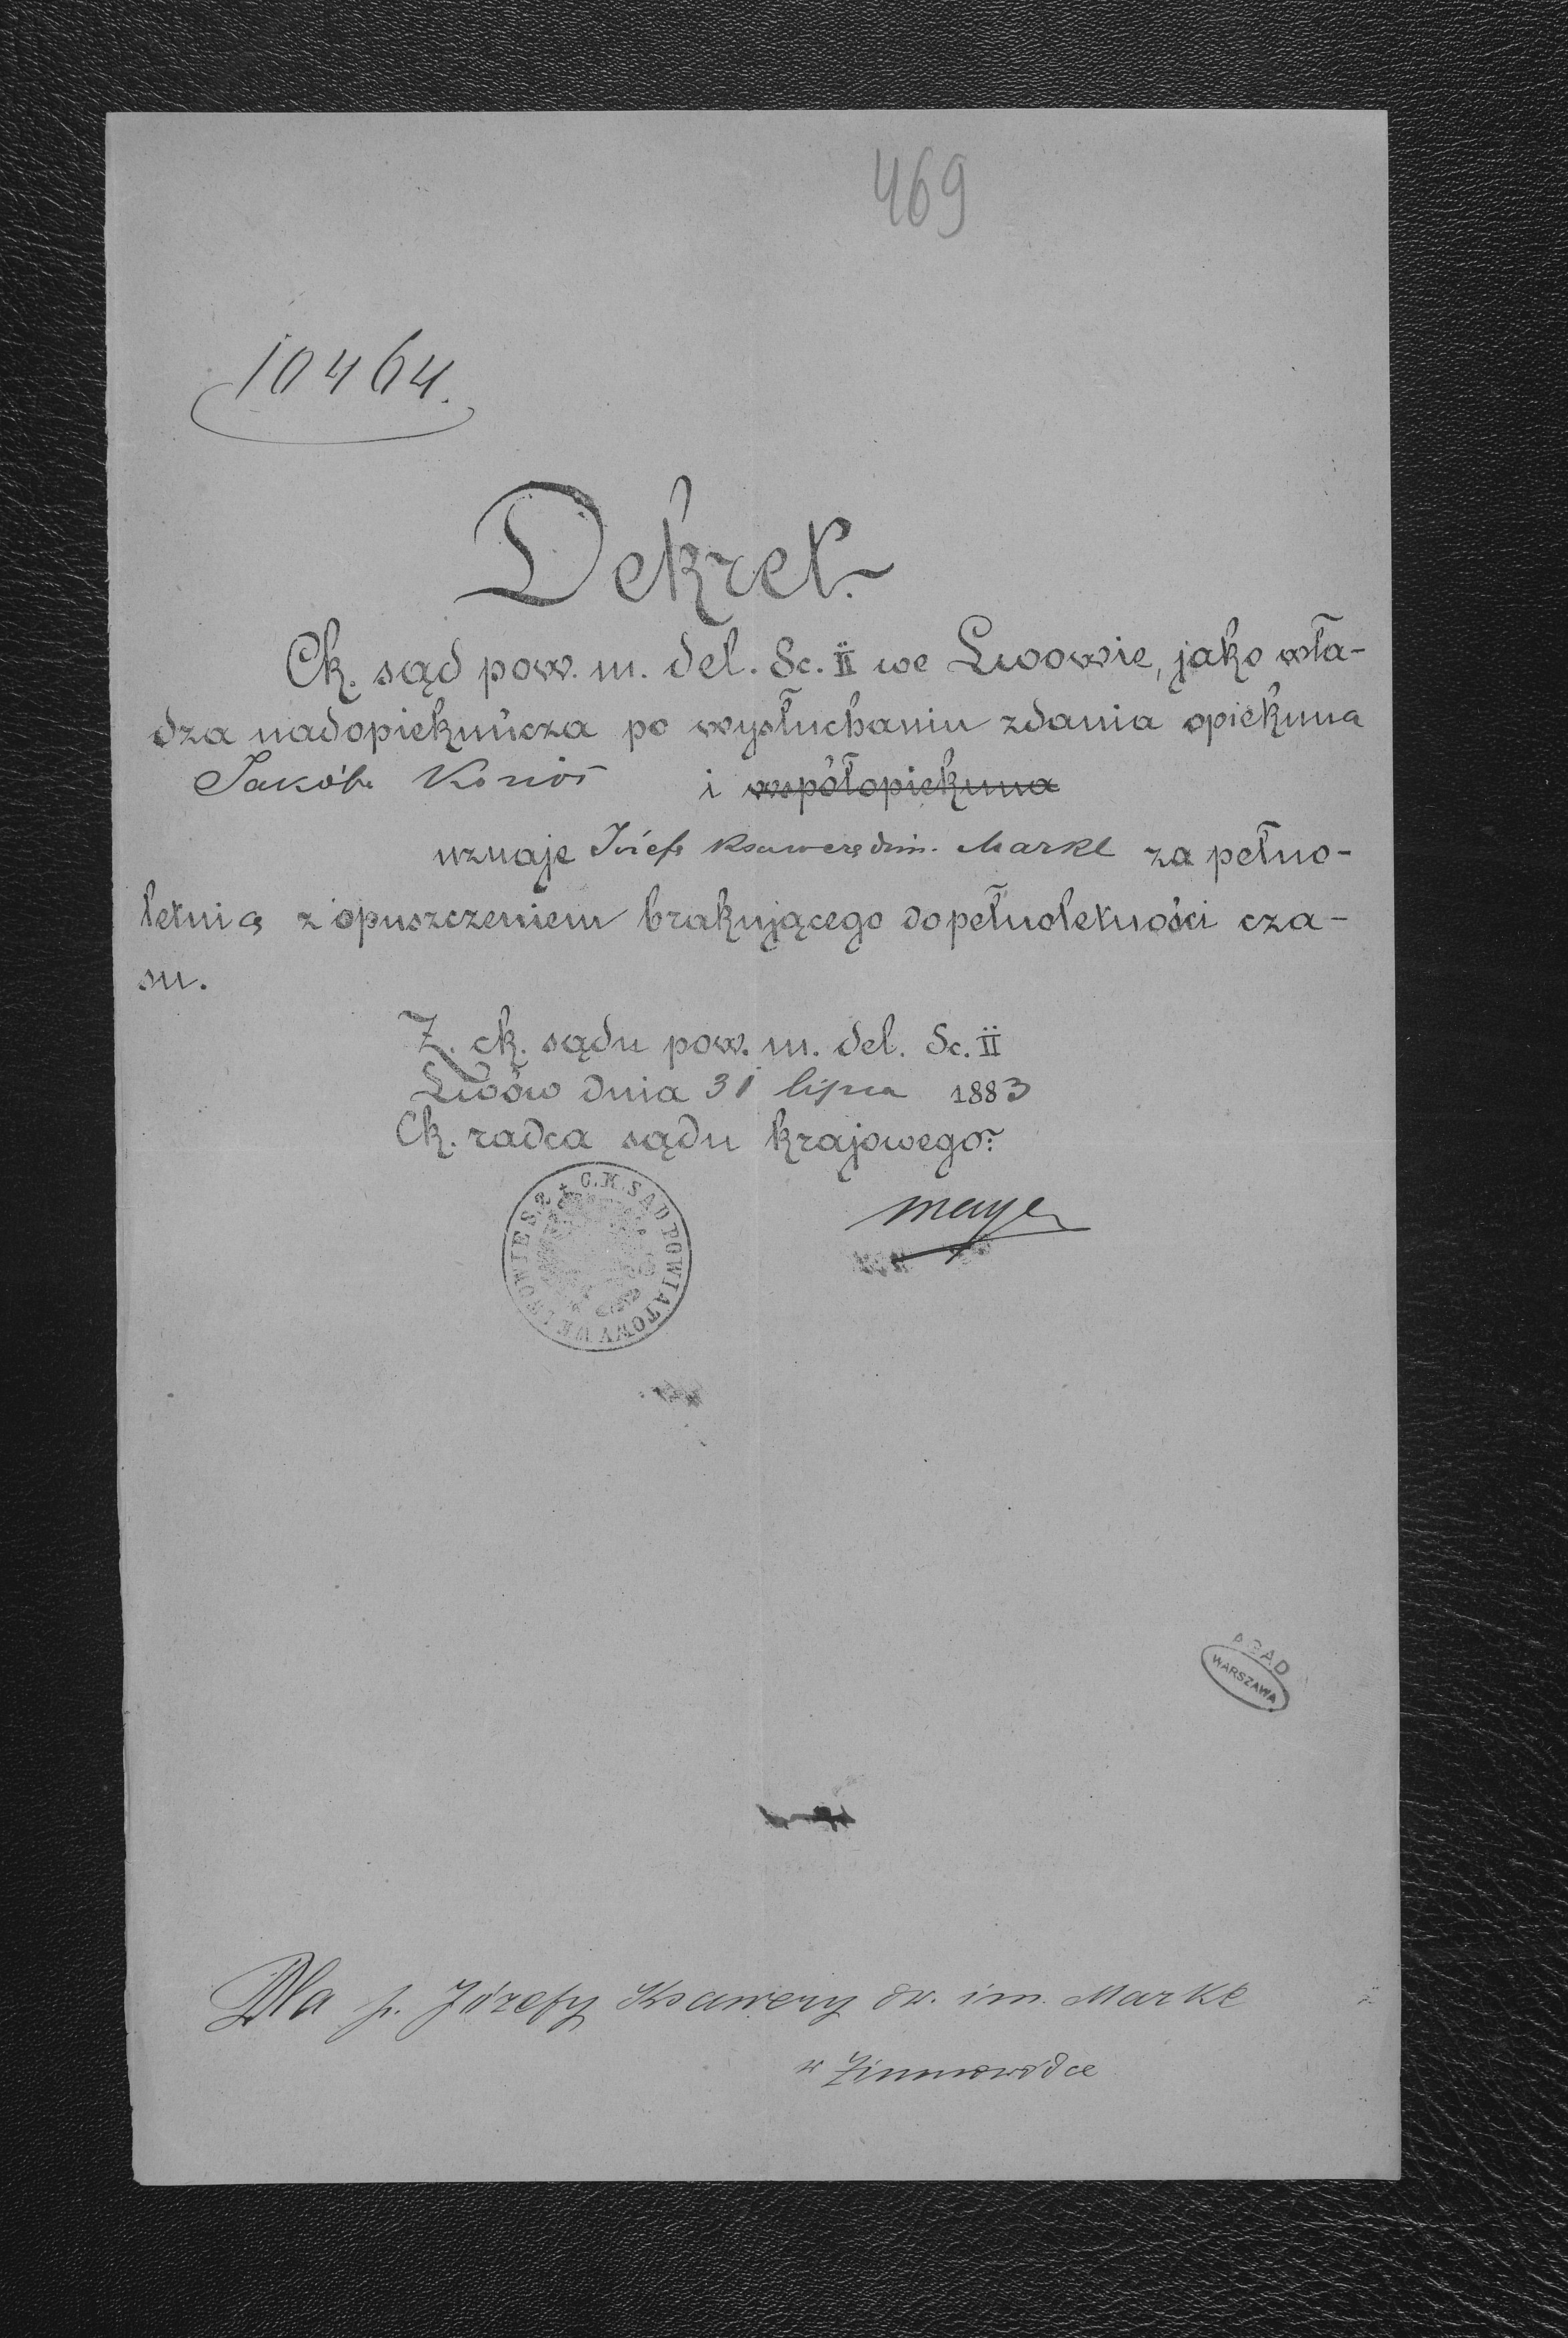 469
10464.
Dekret.
Ck. sąd pow. m. del. Sc. II we Lwowie, jako wła-
dza nadopiekuńcza po wysłuchaniu zdania opiekuna
Jakóba i współopiekuna
uznaje Józefę Ksawerę dwim. Markl za pełno-
letnią z opuszczeniem brakującego do pełnoletności cza-
su.
Z. ck. sądu pow. m. del. Sc. II
Lwów dnia 31 lipca 1883
Ck. radca sądu krajowego:
C.K. SĄD POWIATOWY WE LWOWIE S.2.
Mayer
AGAD
WARSZAWA
Dla p. Józefy Ksawery dw. im. Markl
w Zimnowódce